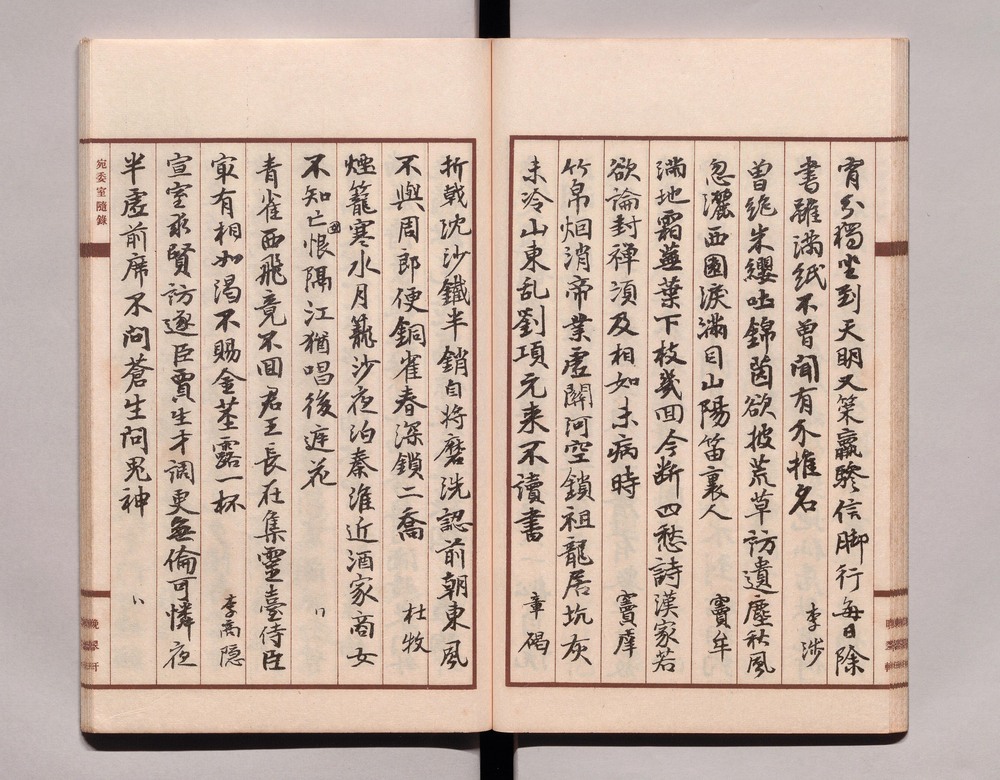 宵分獨坐到天明又策羸驂信脚行每日除
書雖滿紙不曾聞有介推名
李渉
曾絶朱纓吐錦茵欲披荒草訪遺塵秋風
忽灑西園涙滿目山陽笛裏人
竇牟
滿地霜蕪葉下枝幾回今断四愁詩漢家若
欲論封禅須及相如未病時
竇庠
竹帛烟消帝業虚關河空鎖祖龍居坑灰
未冷山東乱劉項元来不讀書
章碣
折戟沈沙鐵半銷自将磨洗認前朝東風
不與周郎便銅雀春深鎖二喬
杜牧
煙籠寒水月籠沙夜泊秦淮近酒家商女
不知亡國恨隔江猶唱後庭花
〃
青雀西飛竟不回君王長在集靈臺侍臣
最有相如渴不賜金茎露一杯
李商隠
宣室求賢訪逐臣賈生才調更無倫可憐夜
半虚前席不問蒼生問鬼神
〃
宛委室隨錄